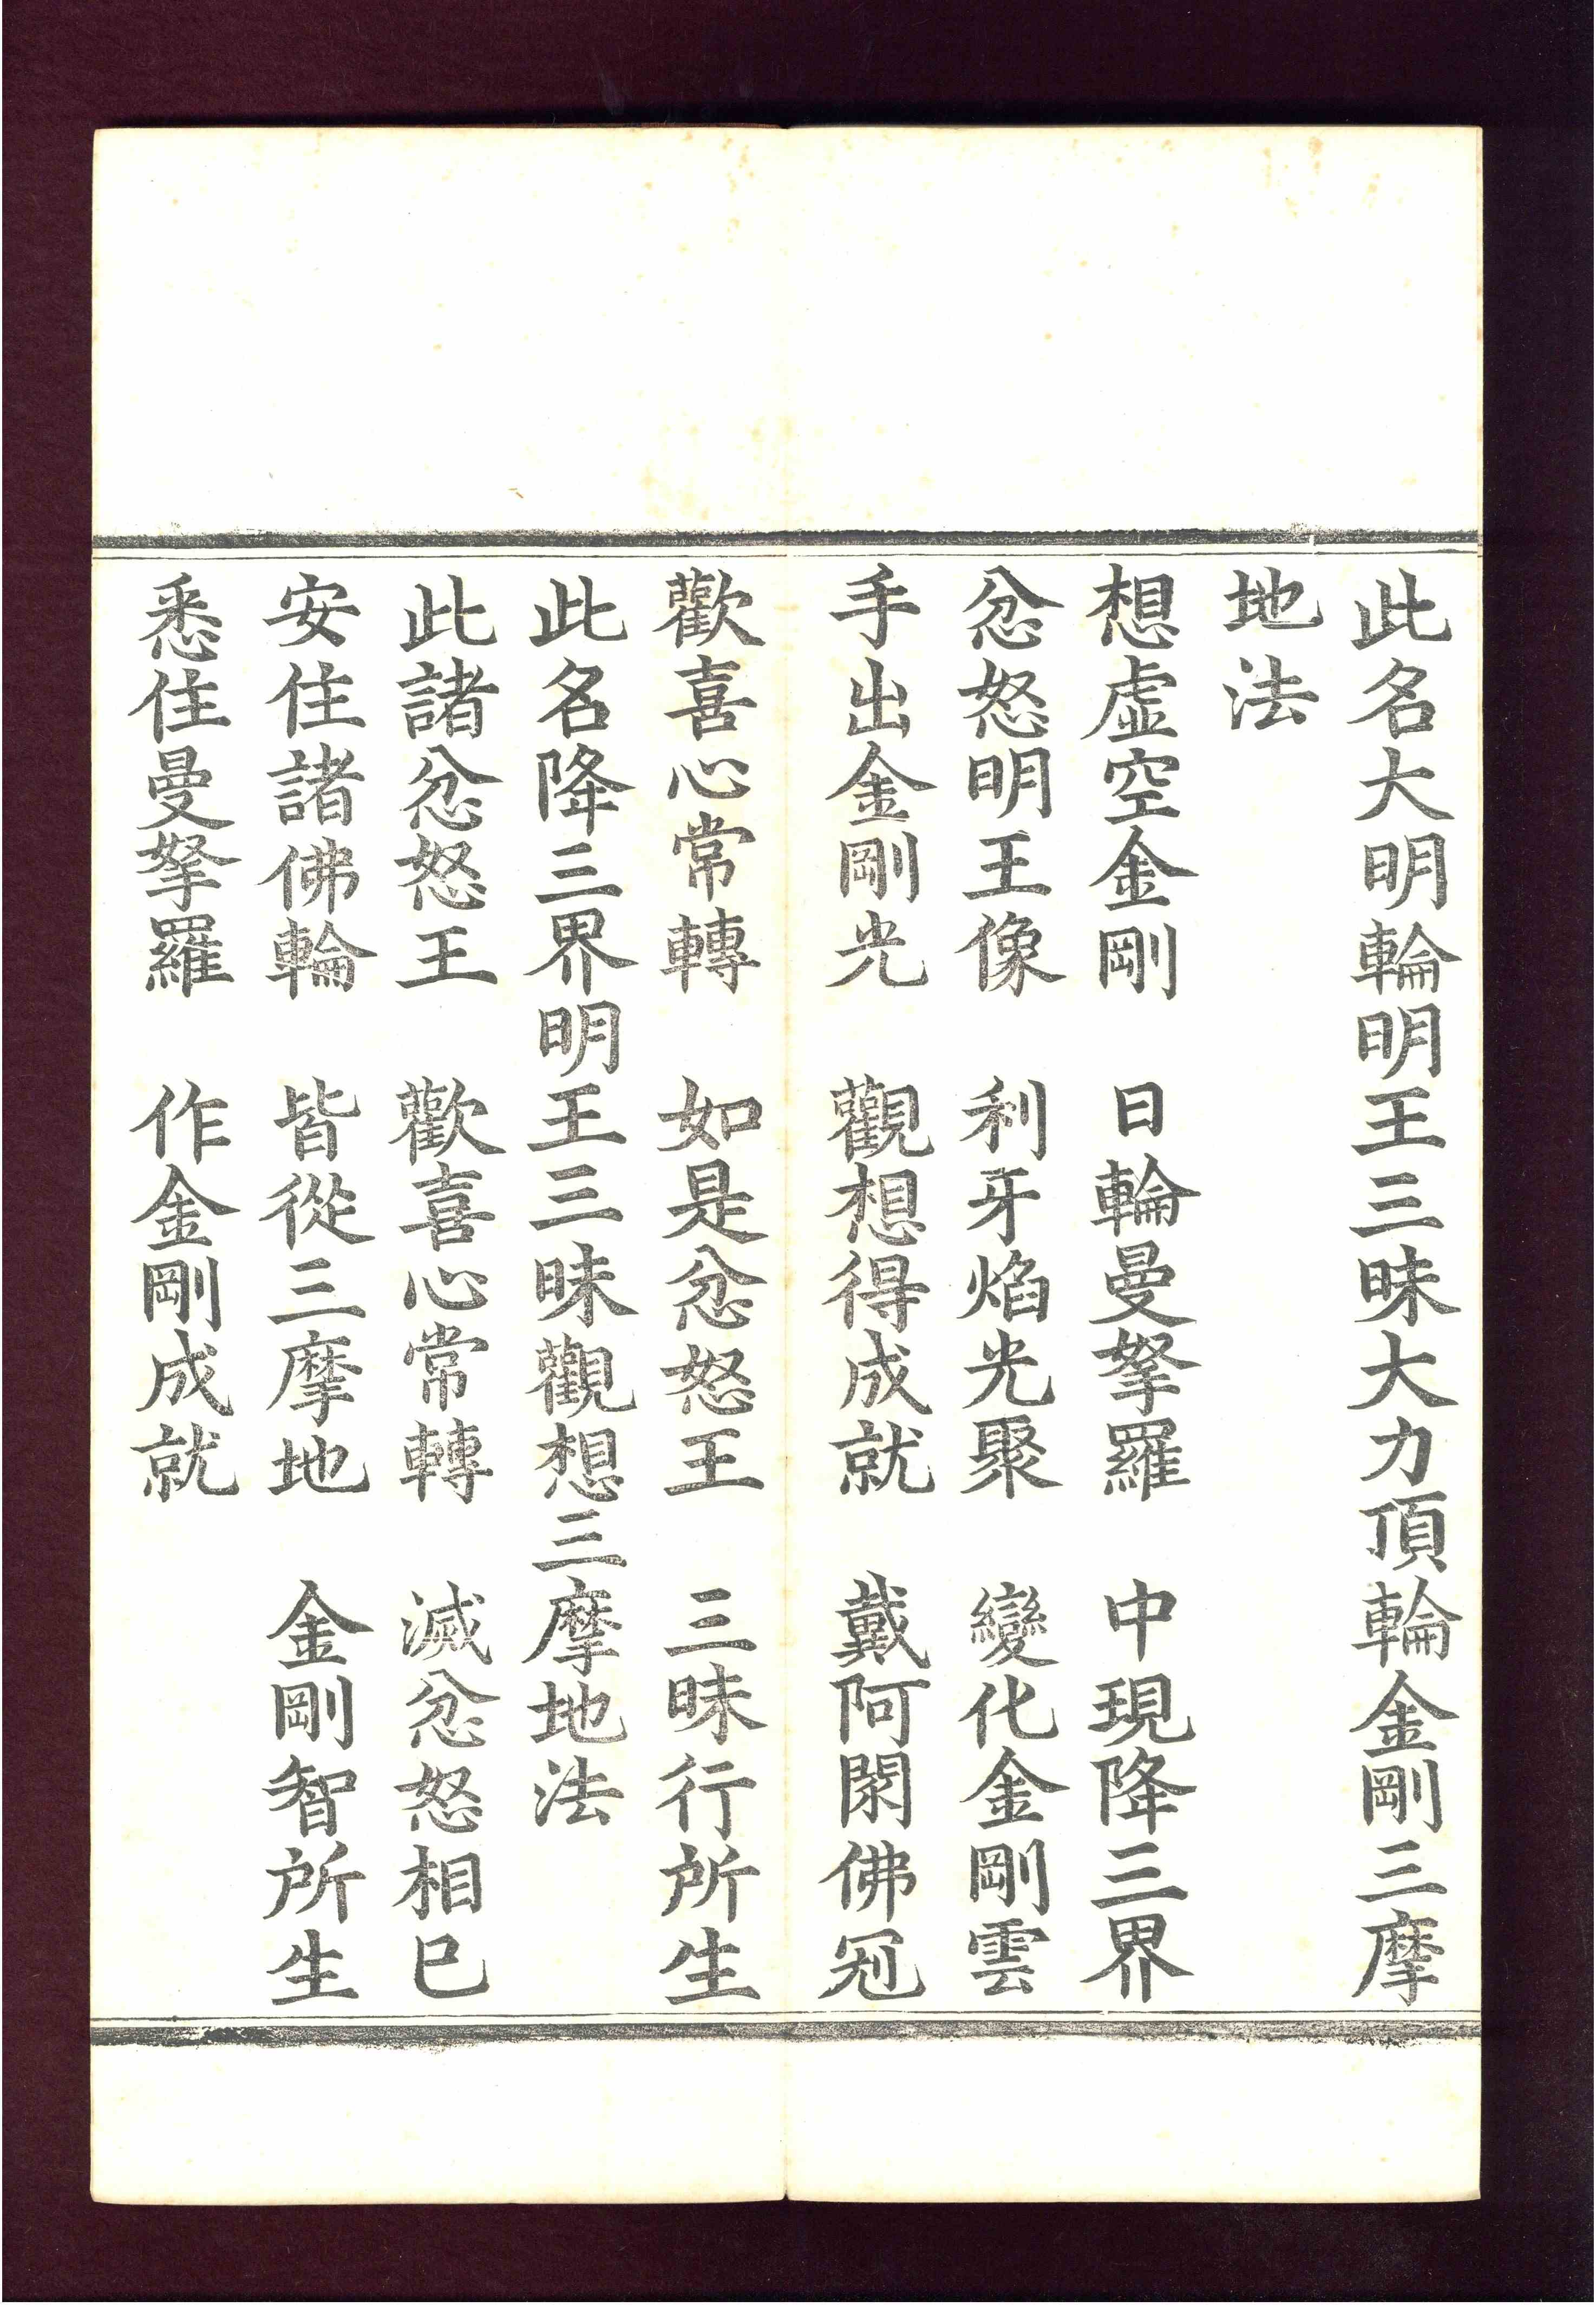 此名大明輪明王三昧大力頂輪金剛三摩
地法
想虛空金剛　日輪曼拏羅　中現降三界
忿怒明王像　利牙焰光聚　變化金剛雲
手出金剛光　觀想得成就　戴阿閦佛冠
歡喜心常轉　如是忿怒王　三昧行所生
此名降三界明王三昧觀想三摩地法
此諸忿怒王　歡喜心常轉　滅忿怒相已
安住諸佛輪　皆從三摩地　金剛智所生
悉住曼拏羅　作金剛成就